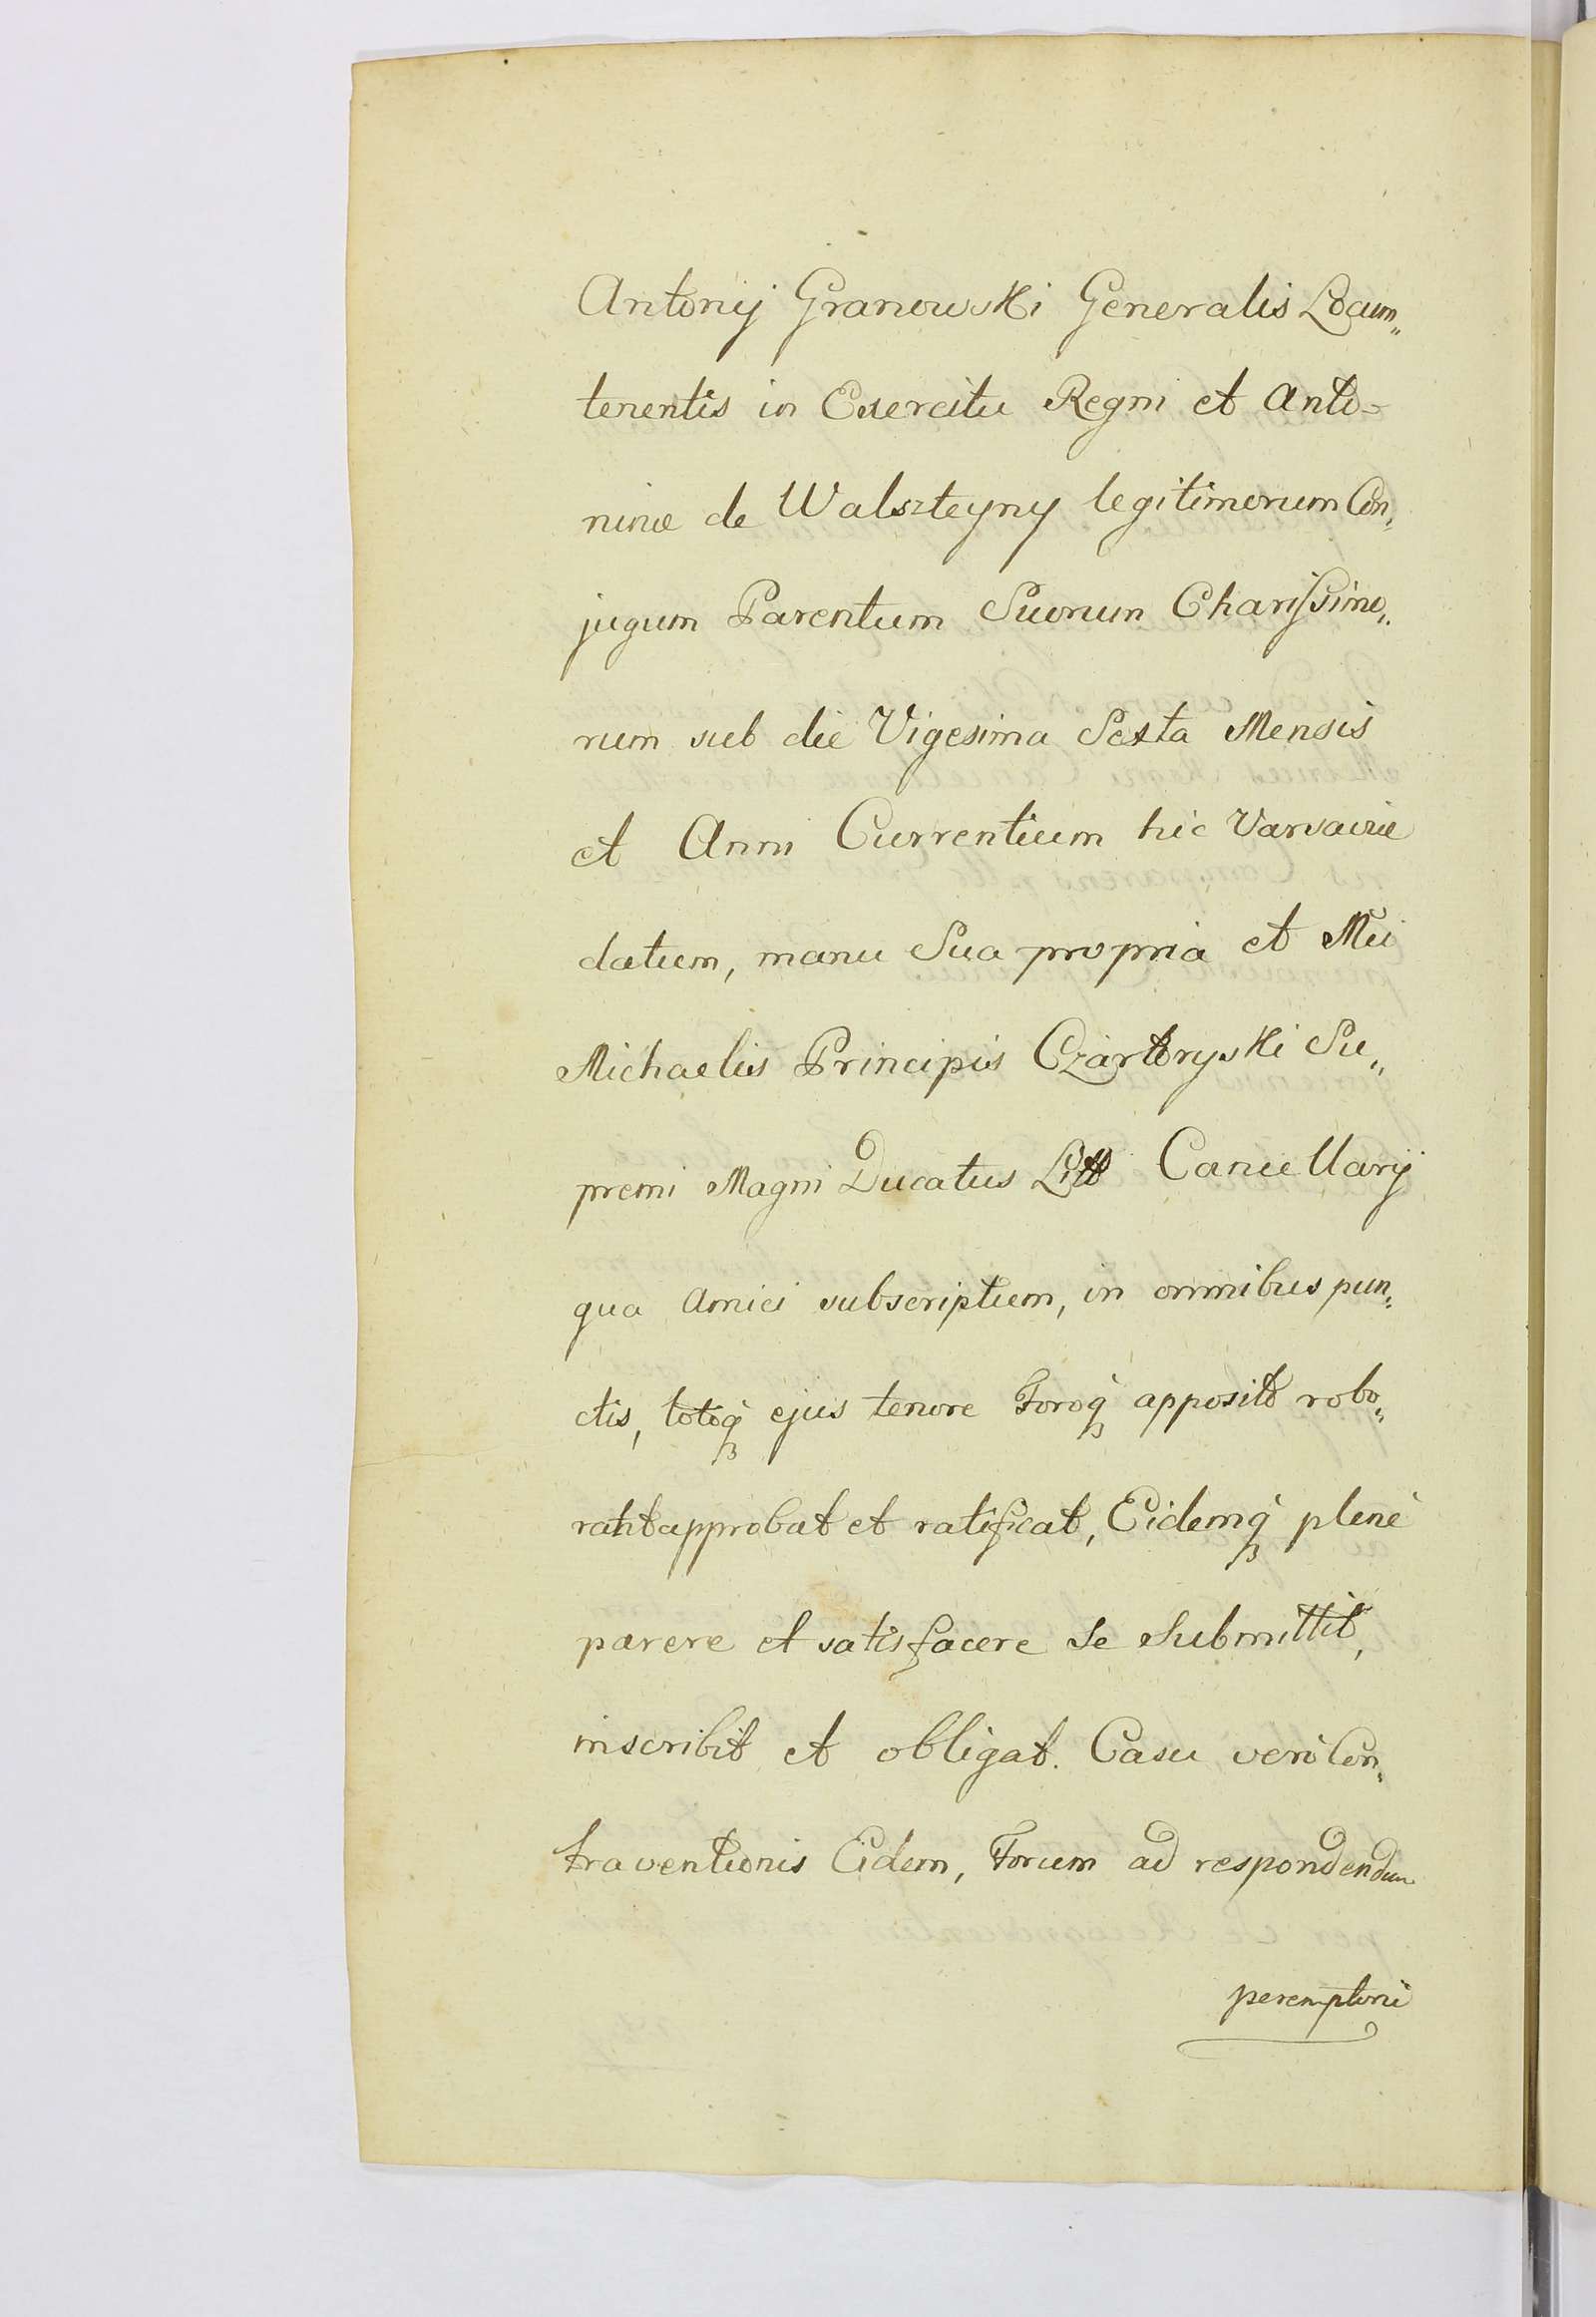 Antonij Granowski Generalis Locum„
tenentis in Exercitu Regni et Anto=
ninæ de Walszteyny legitimorum Con„
jugum Parentum Suorum Charissimo„
rum sub die Vigesima Sexta Mensis
et Anni Currentium hic Varsaviæ
datum, manu Sua propria et Mei
Michaelis Principis Czartoryski Su„
premi Magni Ducatus Litt Cancellarij
qua Amici subscriptum, in omnibus pun„
ctis, totoq́ʒ ejus tenore Foroq́ʒ apposito robo„
rat approbat et ratificat, Eidemq́ʒ plenè
parere et satisfacere se submittit,
inscribit et obligat. Casu verò Con„
traventionis Eidem, Forum ad respondendum
peremptoriè